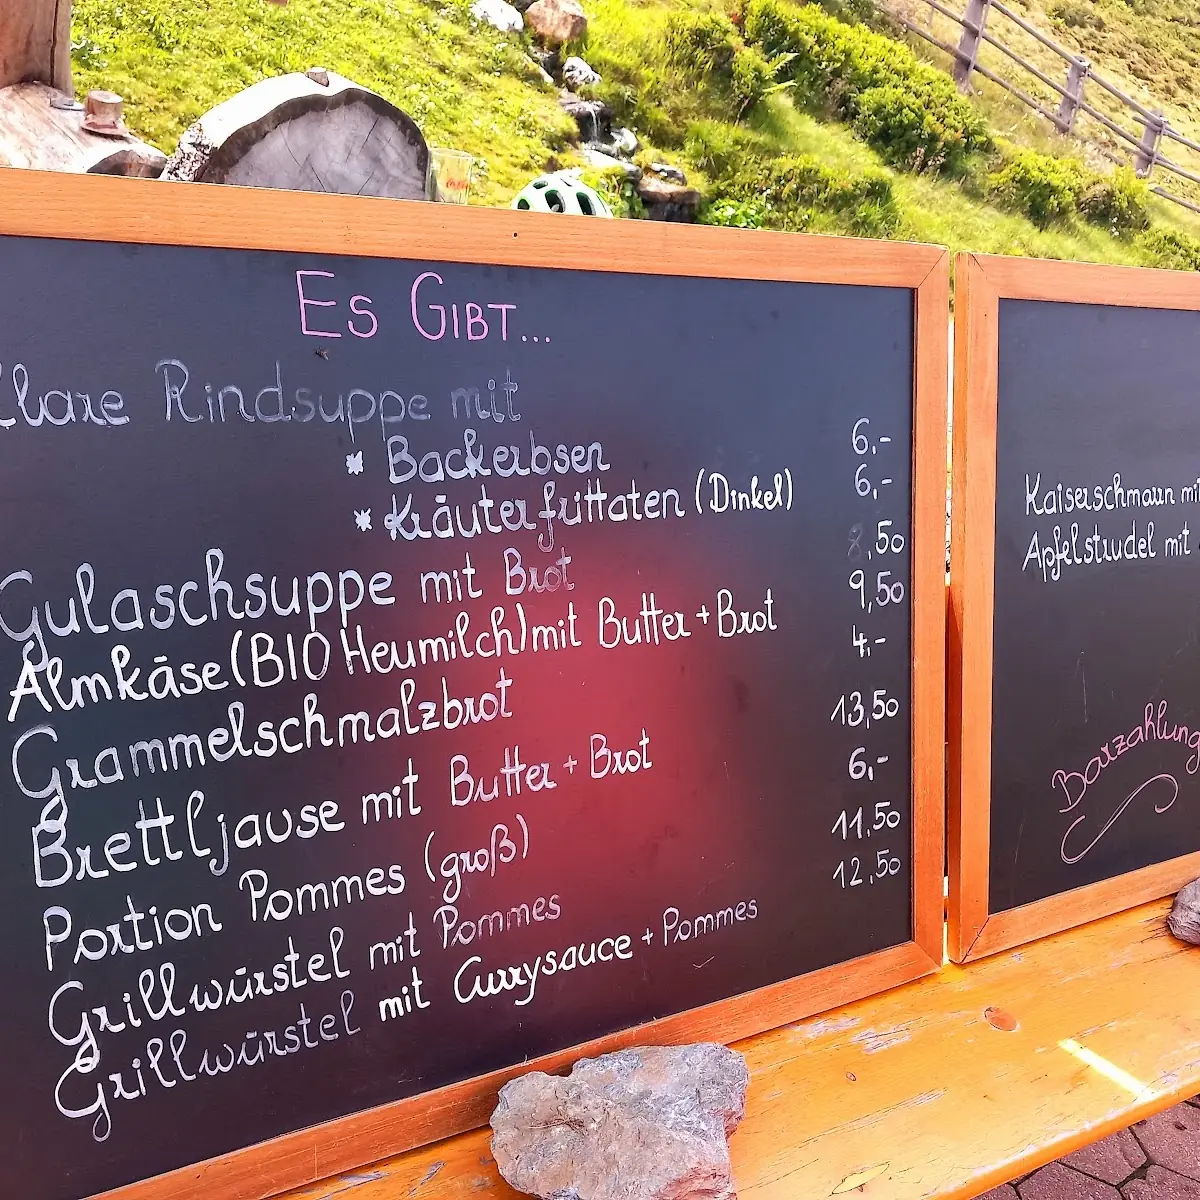 Es Gibt...
Klare Rindsuppe mit
* Backerbsen 6,-
* Kräuterfrittaten (Dinkel) 6,-
Gulaschsuppe mit Brot 8,50
Almkäse (BIO Heumilch) mit Butter + Brot 9,50
Grammelschmalzbrot 4,-
Brettljause mit Butter + Brot 13,50
Portion Pommes (groß) 6,-
Grillwürstel mit Pommes 11,50
Grillwürstel mit Currysauce + Pommes 12,50
Kaiserschmarn mit
Apfelstrudel mit
Barzahlung